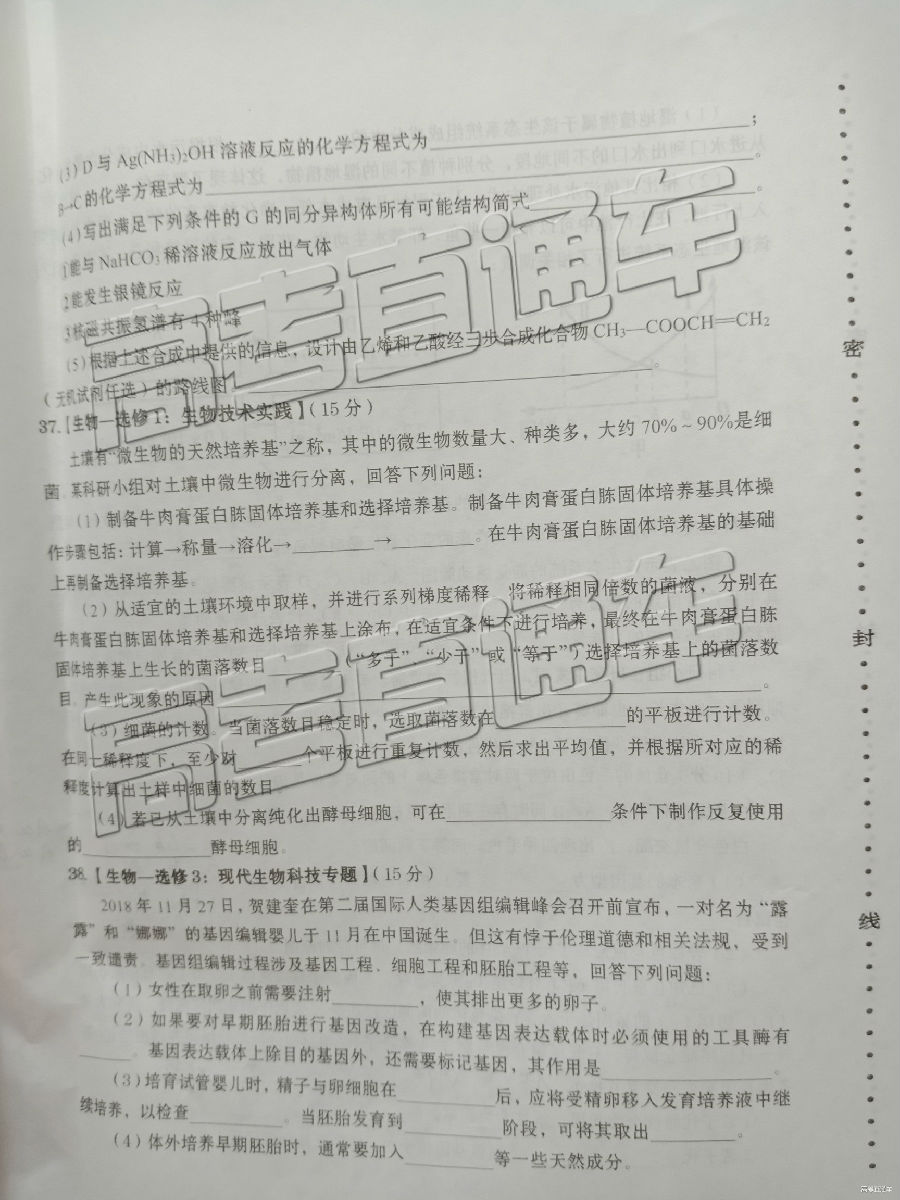 (3) D 与 Ag(NH₃)₂OH 溶液反应的化学方程式为____________；
B→C的化学方程式为____________。
(4)写出满足下列条件的 G 的同分异构体所有可能结构简式____________。
①能与 NaHCO₃ 稀溶液反应放出气体
②能发生银镜反应
③核磁共振氢谱有 4 种峰
(5)根据上述合成中提供的信息，设计由乙烯和乙酸经三步合成化合物 CH₃—COOCH=CH₂
（无机试剂任选）的路线图____________。
37.【生物—选修 1：生物技术实践】（15 分）
土壤有“微生物的天然培养基”之称，其中的微生物数量大、种类多，大约 70%～90%是细
菌。某科研小组对土壤中微生物进行分离，回答下列问题：
(1) 制备牛肉膏蛋白胨固体培养基和选择培养基。制备牛肉膏蛋白胨固体培养基具体操
作步骤包括：计算→称量→溶化→________→________。在牛肉膏蛋白胨固体培养基的基础
上再制备选择培养基。
(2) 从适宜的土壤环境中取样，并进行系列梯度稀释，将稀释相同倍数的菌液，分别在
牛肉膏蛋白胨固体培养基和选择培养基上涂布，在适宜条件下进行培养，最终在牛肉膏蛋白胨
固体培养基上生长的菌落数目________（“多于”、“少于”或“等于”）选择培养基上的菌落数
目。产生此现象的原因____________。
(3) 细菌的计数。当菌落数目稳定时，选取菌落数在____________的平板进行计数。
在同一稀释度下，至少对________个平板进行重复计数，然后求出平均值，并根据所对应的稀
释度计算出土样中细菌的数目。
(4) 若已从土壤中分离纯化出酵母细胞，可在____________条件下制作反复使用
的____________酵母细胞。
38.【生物—选修 3：现代生物科技专题】（15 分）
2018 年 11 月 27 日，贺建奎在第二届国际人类基因组编辑峰会召开前宣布，一对名为“露
露”和“娜娜”的基因编辑婴儿于 11 月在中国诞生。但这有悖于伦理道德和相关法规，受到
一致谴责。基因组编辑过程涉及基因工程、细胞工程和胚胎工程等，回答下列问题：
(1) 女性在取卵之前需要注射________，使其排出更多的卵子。
(2) 如果要对早期胚胎进行基因改造，在构建基因表达载体时必须使用的工具酶有
______。基因表达载体上除目的基因外，还需要标记基因，其作用是____________。
(3) 培育试管婴儿时，精子与卵细胞在________后，应将受精卵移入发育培养液中继
续培养，以检查________。当胚胎发育到________阶段，可将其取出________。
(4) 体外培养早期胚胎时，通常要加入________等一些天然成分。
密
封
线
高考直通车
高考直通车